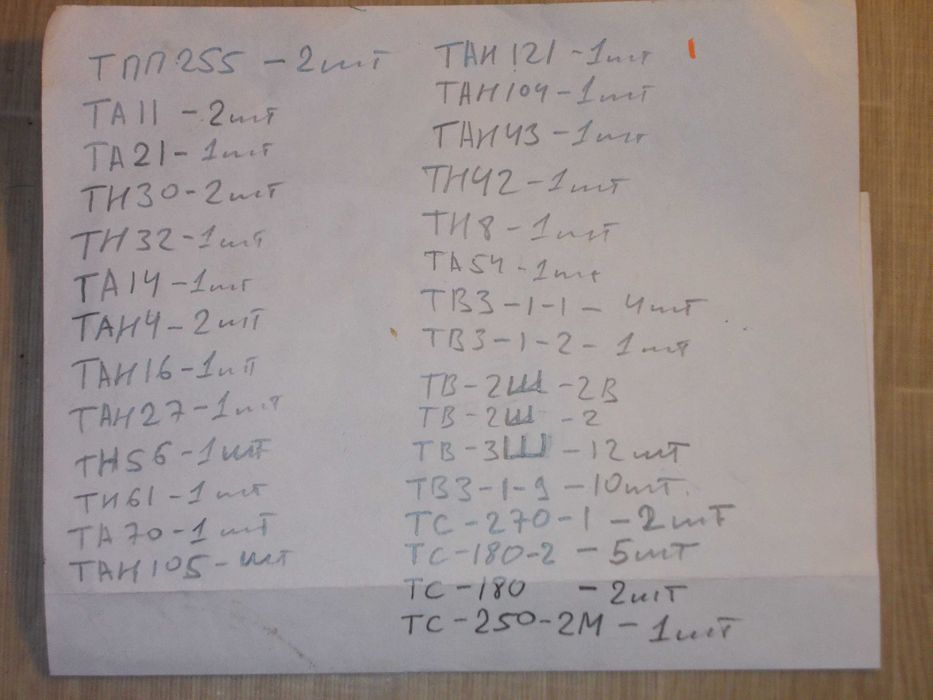 ТПП255 - 2шт
ТА11 - 2шт
ТА21 - 1шт
ТН30 - 2шт
ТН32 - 1шт
ТА14 - 1шт
ТАН4 - 2шт
ТАН16 - 1шт
ТАН27 - 1шт
ТН56 - 1шт
ТН61 - 1шт
ТА70 - 1шт
ТАН105 - шт
ТАН121 - 1шт
ТАН104 - 1шт
ТАН43 - 1шт
ТН42 - 1шт
ТН8 - 1шт
ТА54 - 1шт
ТВЗ - 1 - 1 - 4шт
ТВЗ - 1 - 2 - 1шт
ТВ - 2Ш - 2В
ТВ - 2Ш - 2
ТВ - 3Ш - 12шт
ТВЗ - 1 - 9 - 10шт.
ТС - 270 - 1 - 2шт
ТС - 180 - 2 - 5шт
ТС - 180 - 2шт
ТС - 250 - 2М - 1шт